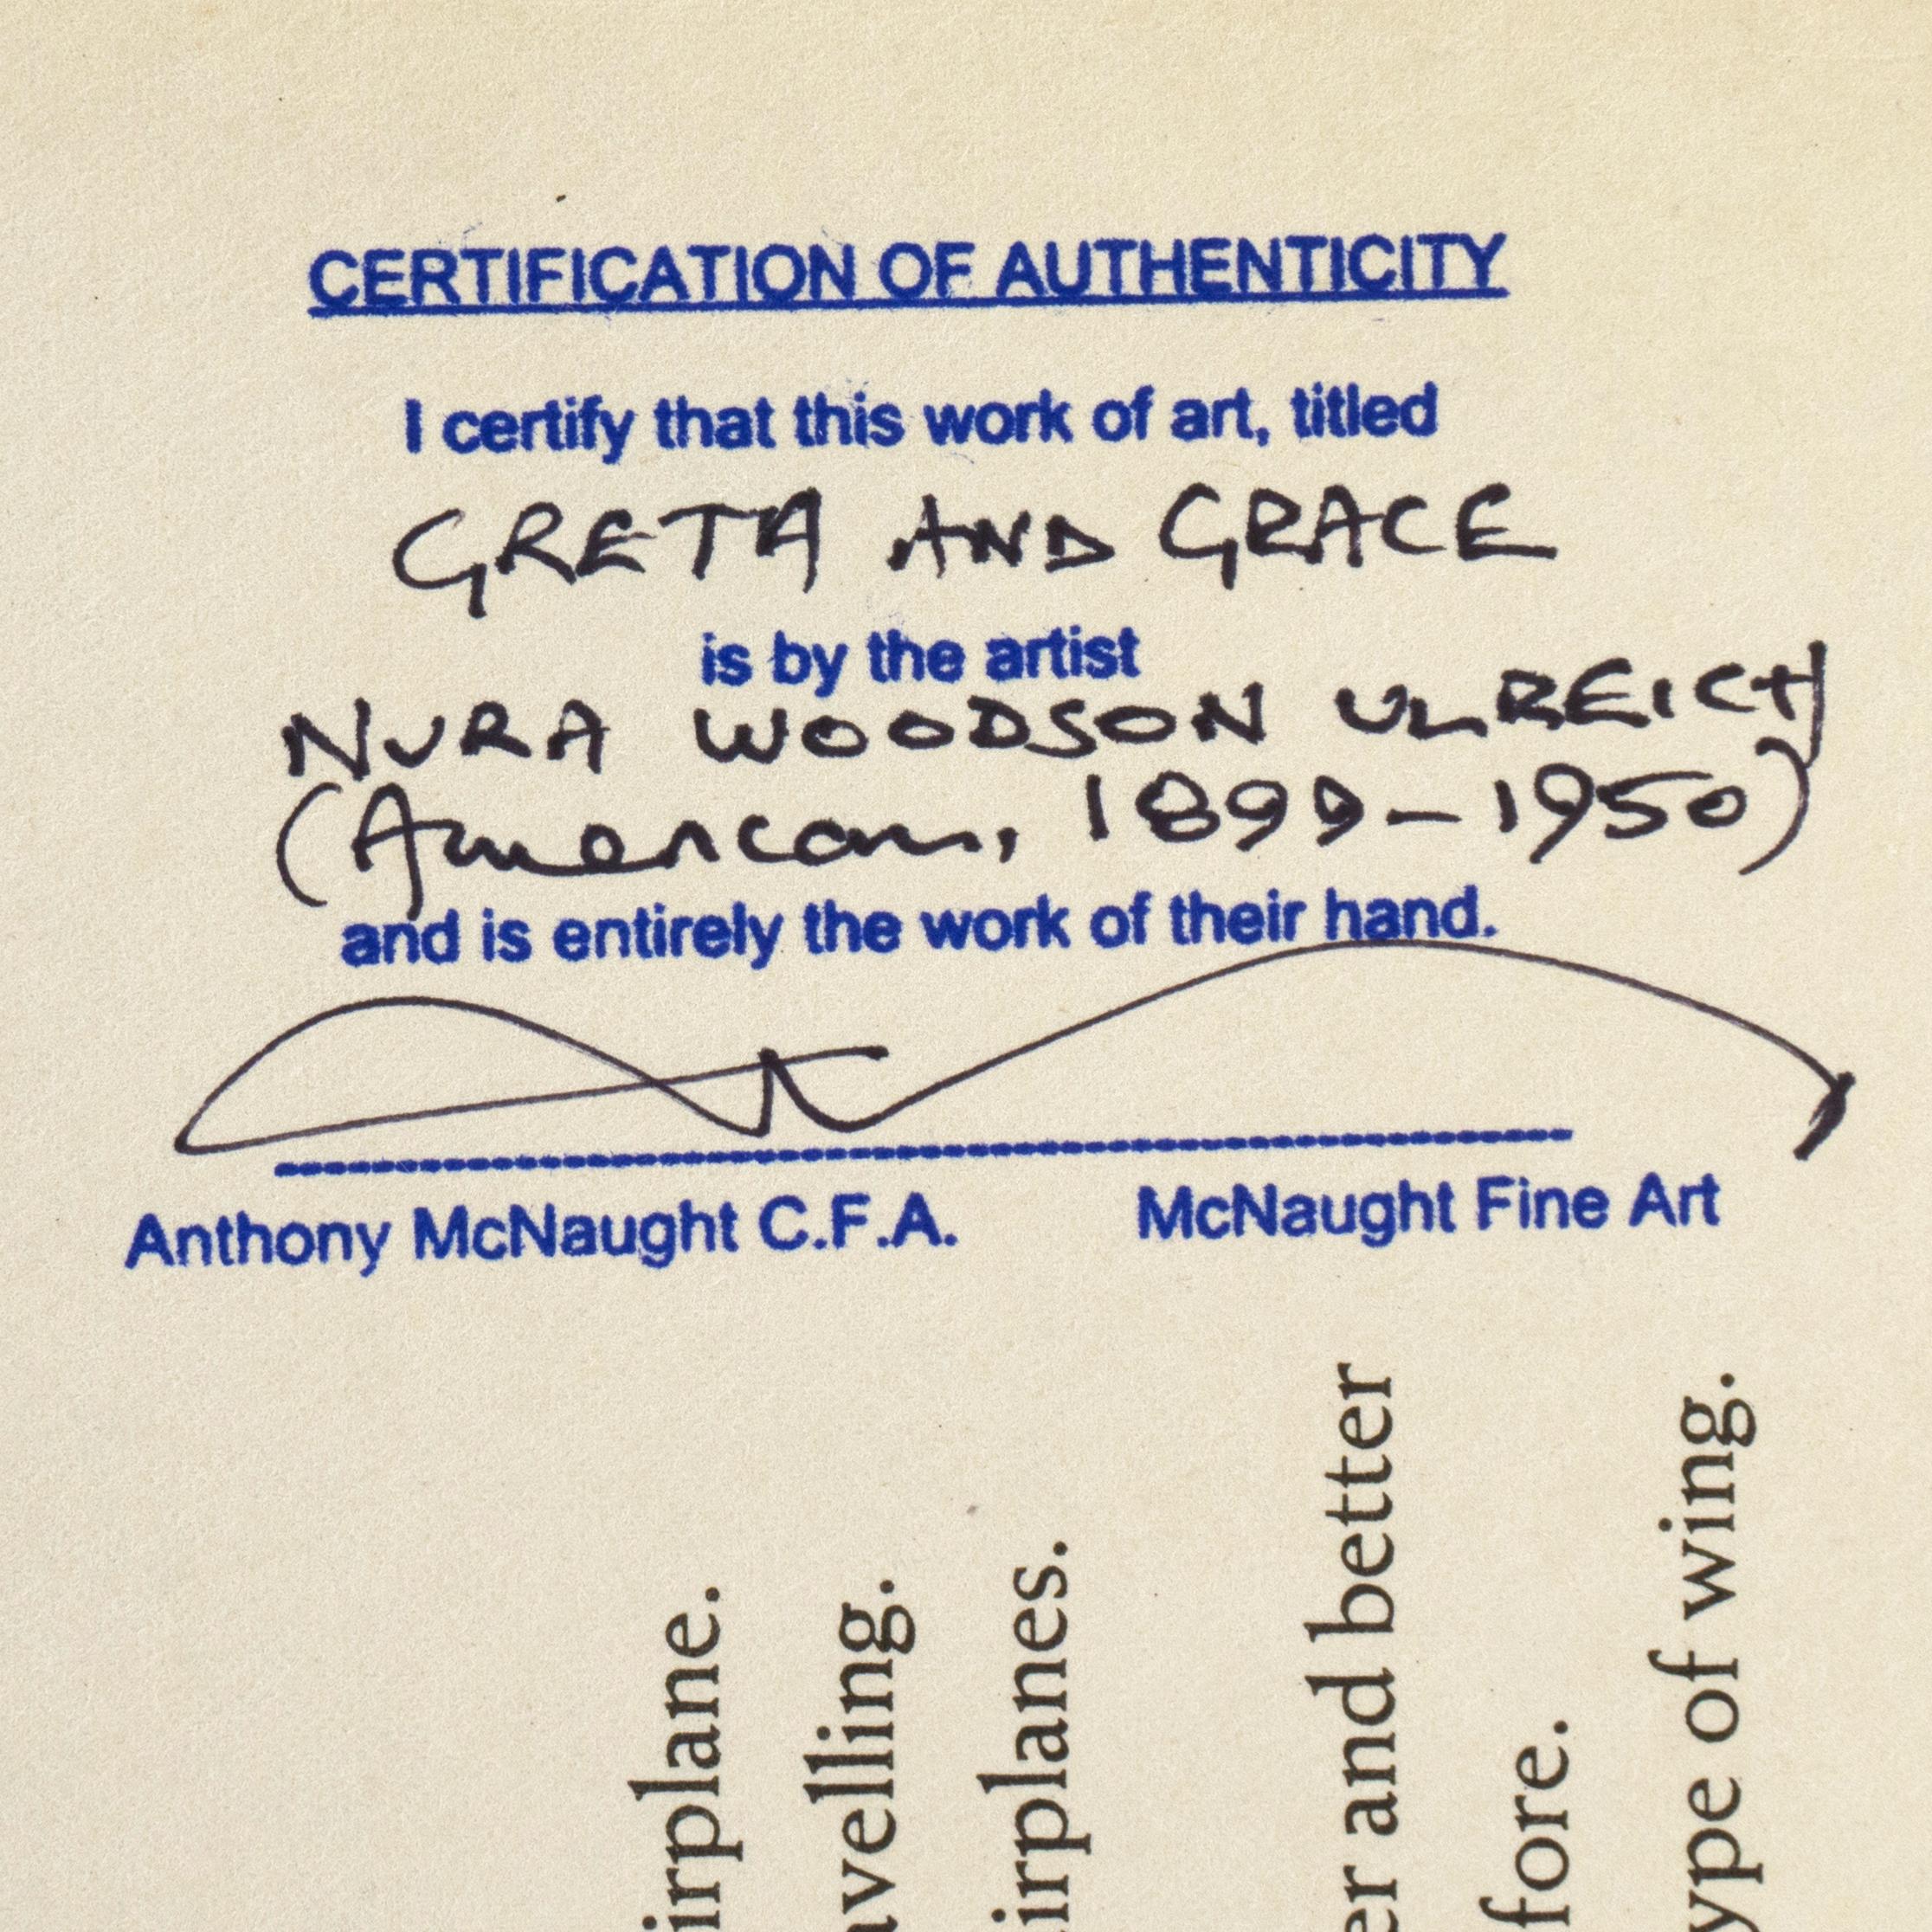 CERTIFICATION OF AUTHENTICITY
I certify that this work of art, titled
GRETA AND GRACE
is by the artist
NURA WOODSON ULREICH
(American, 1899-1950)
and is entirely the work of their hand.
Anthony McNaught C.F.A. McNaught Fine Art
irplane.
avelling.
irplanes.
er and better
fore.
ype of wing.